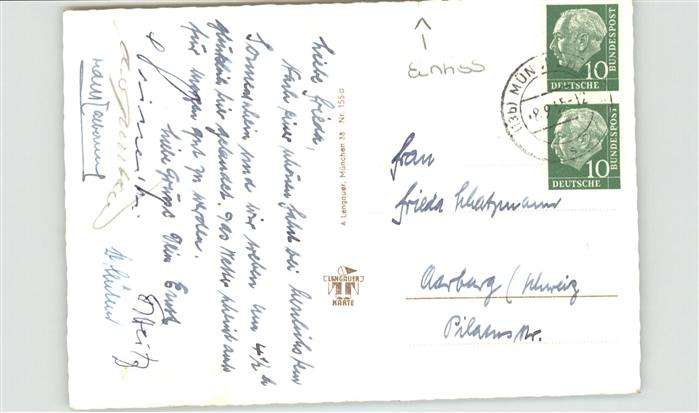 Liebe Frieda,
Nach einer schönen Fahrt bei herrlichstem
Sonnenschein sind wir soeben um 4½ h
glücklich hier gelandet. Das Wetter scheint auch
für morgen gut zu werden.
Liebe Grüsse Dein Ernst
A Lengauer, München 38 Nr. 155a
LENGAUER
KARTE
10
DEUTSCHE
BUNDESPOST
10
DEUTSCHE
BUNDESPOST
(13b) MÜN
Frau
Frieda Schatzmann
Aarburg / Schweiz
Pilatusstr.